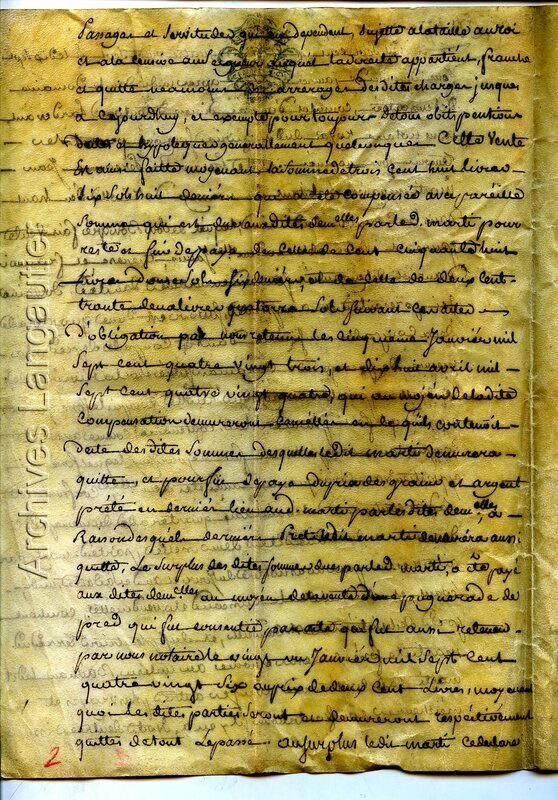 Passages et Servitudes qui en dependent, Sujette a la taille au roi
et a la Censive au Seigneur auquel la directe appartient, franche
et quitte neanmoins des arrerages desdites charges jusques
a cejourdhuy, et exempte pour toujours de tous obits pentions
dettes et hypoteques generallement quelconques Cette Vente
Est ainsi faitte moyenant la Somme de trois Cent huit livres
dix Sols huit deniers qui a eté compensée avec pareille
Somme qui est due auxdites demelles par led. marti pour
reste et fin de paye de Celle de Cent Cinquante huit
livres douze Sols six deniers, et de Celle de deux Cent
trante deux livres quatorze Sols Suivant Ces actes
d'obligation par nous retenus les Cinquieme Janvier mil
Sept Cent quatre vingt trois, et dix huit avril mil
Sept Cent quatre vingt quatre, qui au moyen de ladite
Compensation demureront Cancellés en Ce quils contenoit
dette desdites Sommes desquelles ledit marti demurera
quitte, et pour fin de paye du prix des grains et argent
prêté en dernier lieu aud. marti par lesdites demelles, a
Raison desquels derniers Prets ledit marti demurera aussi
quitte, Le Surplus desdites Sommes dues par led. marti, a eté payé
aux dites demelles au moyen de la vente d'une pugnerade de
pred qui fut consentie par acte qui fut aussi retenu
par nous notaire le vingt un Janvier mil Sept Cent
quatre vingt Six au prix de deux Cent Livres, moyenant
quoi lesdites parties Seront et demureront respectivement
quittes de tout Le passé. au Surplus ledit marti a declaré
2
Archives Langautier